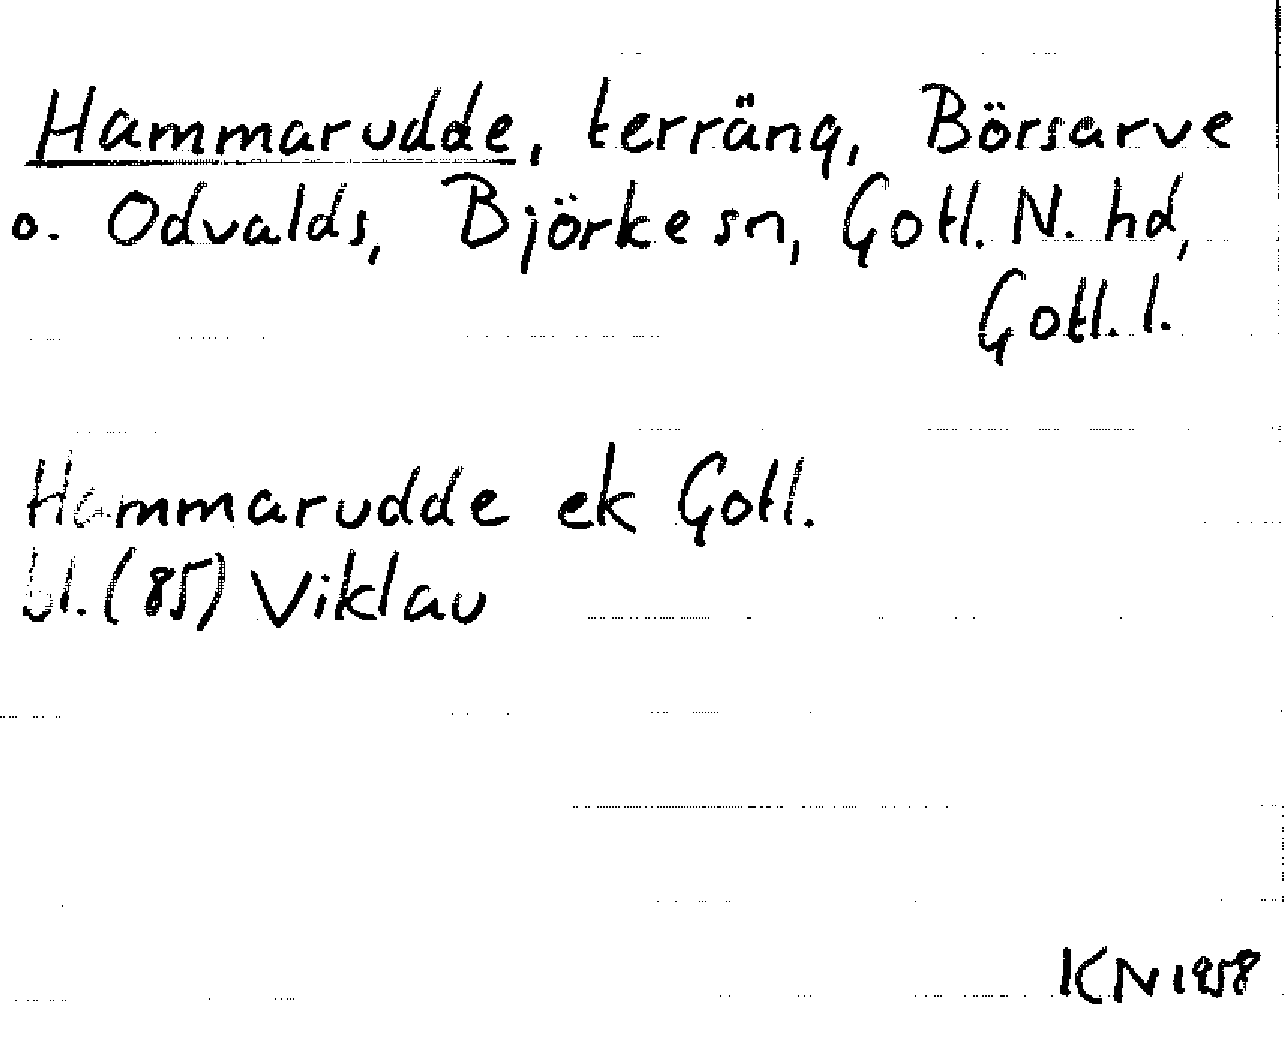 Hammarudde, terräng, Börsarve
o. Odvalds, Björke sn, Gotl. N. hd,
Gotl. l.
Hammarudde ek Gotl.
bl. (85) Viklau
KN 1958